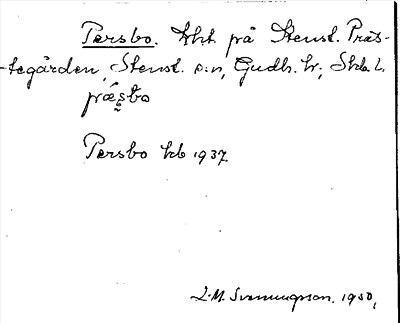 Persbo. tht på Stenst. Präs-
-tegården, Stenst. s:n, Gudh. hr, Skb. l.
præsbo
Persbo kb 1937
L.M. Svenungsson. 1930,